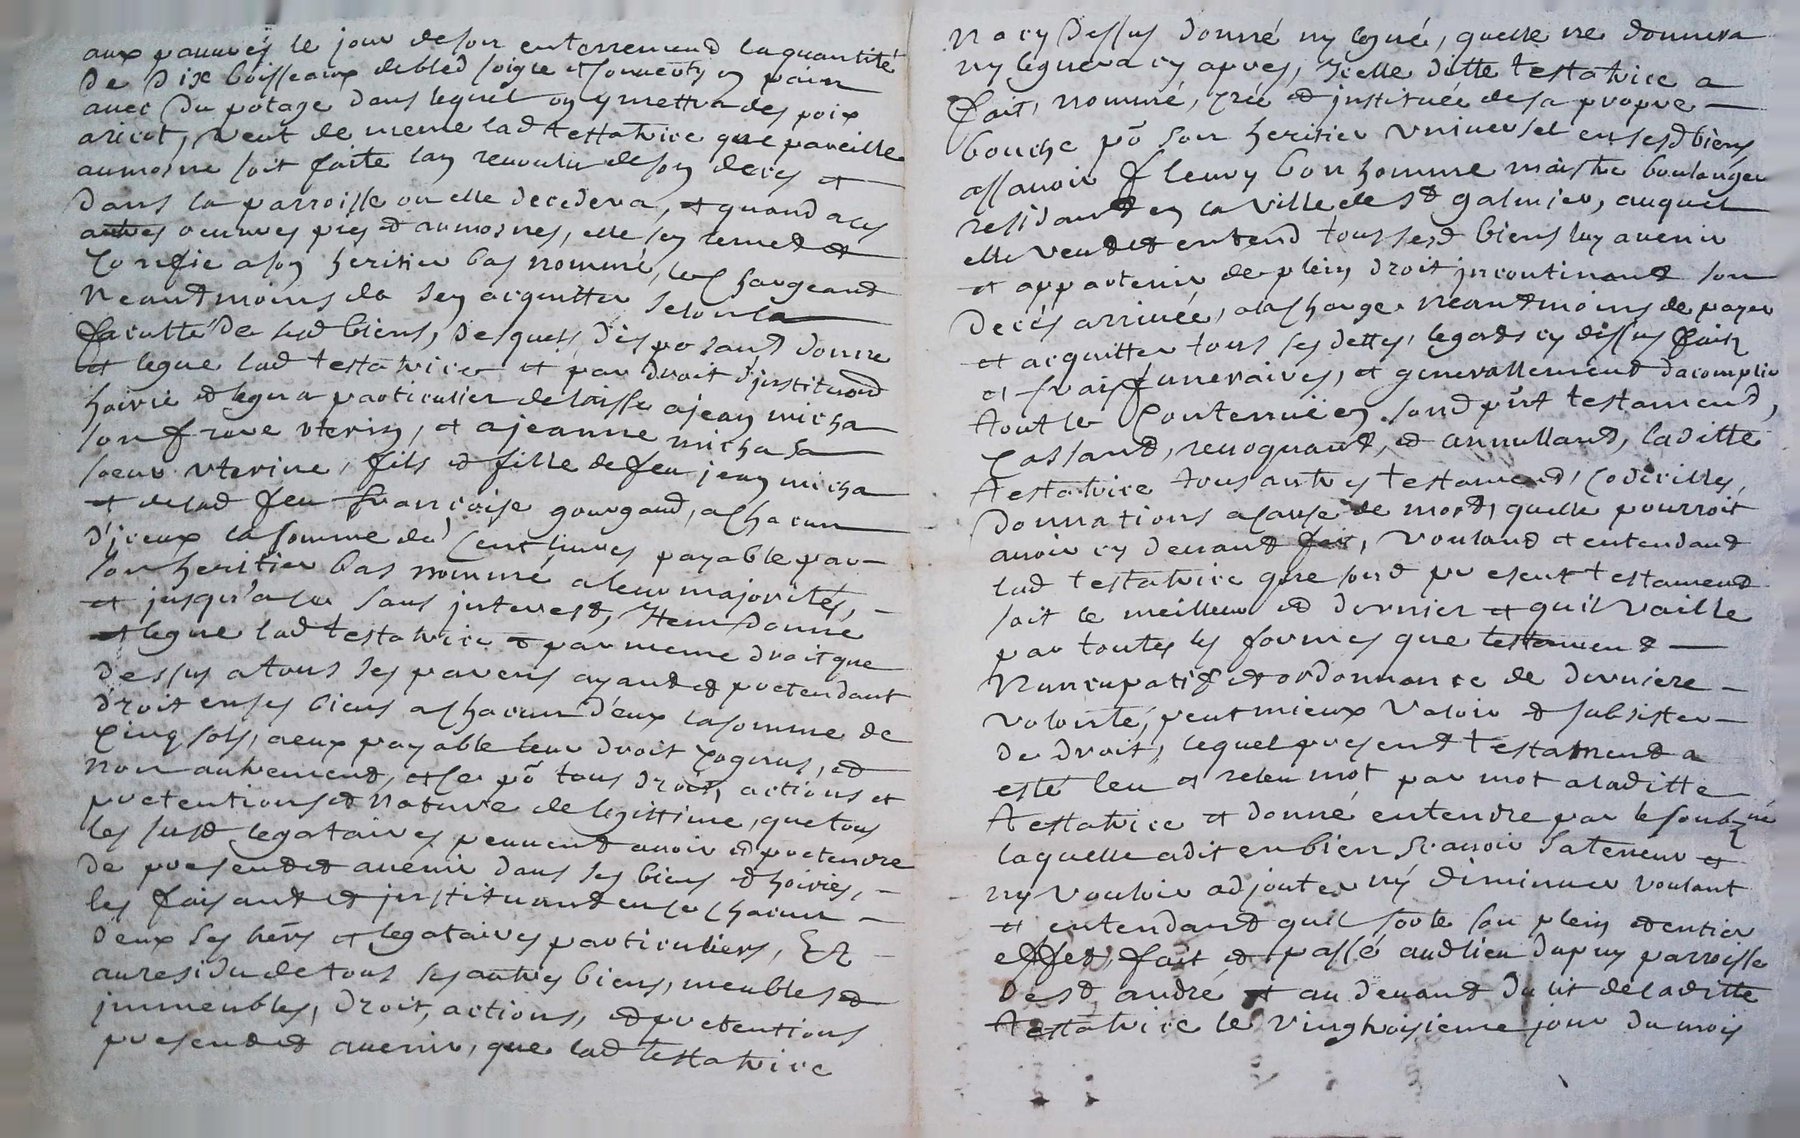 aux pauures le jour deson enterremend laquantité
de dix boisseaux debled soigle et conuerty en pain
auec du potage dans lequel on y mettra des poix
aricot, veut de meme lad testatrice que pareille
aumosne soit faite lan reuoulu deson deces et
dans la parroisse ou elle decedera, et quand aces
autres oeuures pies et aumosnes, elle sen remet et
confie ason heritier bas nommé, lechargeand
neandmoins de sen acquitter selon la
faculté de sesd biens, desquels disposand donne
et legue lad testatrice et par droit djnstitution
hoirie et legua particulier delaisse ajean micha
son frere uterin, et ajeanne micha sa
soeur uterine, fils et fille de feu jean micha
et delad feu francoise gourgaud, achacun
d'jceux la somme de cent liures payable par
son heritier bas nommé aleur majorités,
et jusqu'a ce sans jnterest, Item donne
et legue lad testatrice et par meme droit que
dessus atous ses parens ayant et pretendant
droit enses biens achacun d'eux lasomme de
cinq sols, aeux payable leur droit cognus, et
non autrement, et ce po tous droits, actions et
pretentions et nature de legittime, que tous
les susd legataires peuuent auoir et pretendre
de present et auenir dans ses biens et hoiries,
les faisant et jnstituant en ce chacun
deux ses hers et legataires particuliers, Et
au residu de tous ses autres biens, meubles et
jmmeubles, droit, actions, et pretentions
present et auenir, que lad testatrice
na cy dessus donné ny legué, quelle ne donnera
ny leguera cy apres, Icelle ditte testatrice a
fait, nommé, créé et jnstituée desa propre
bouche po son heritier vniuersel en sesd biens
assauoir fleury bonhomme maistre boulanger
residand en la ville de St galmier, auquel
elle veut et entend tous sesd biens luy auenir
et appartenir de plein droit jncontinand son
decés arriuée, alacharge neandmoins de payer
et acquitter tous ses dettes, legats cy dessus faits
et frais funeraires, et generallement dacomplir
tout le contenu en sond pnt testament,
cassand, reuoquand, et annulland, laditte
testatrice tous autres testament, codicilles,
donnations acause de mort, quelle pourroit
auoir cy deuand fait, vouland et entendand
lad testatrice que sond present testament
soit le meilleur et dernier et quil vaille
par toutes les formes que testament
nuncupatif et ordonnance de derniere
volonté, peut mieux valoir et subsister
de droit, lequel present testament a
esté leu et releu mot par mot aladitte
testatrice et donné entendre par le soubzné
laquelle adit en bien scauoir sa teneur et
ny vouloir adjouter ny diminuer voulant
et entendand quil sorte son plein et entier
effet, fait et passé audlieu dupuy parroisse
de St andré et au deuand du lit de laditte
testatrice le vingtroisieme jour du mois